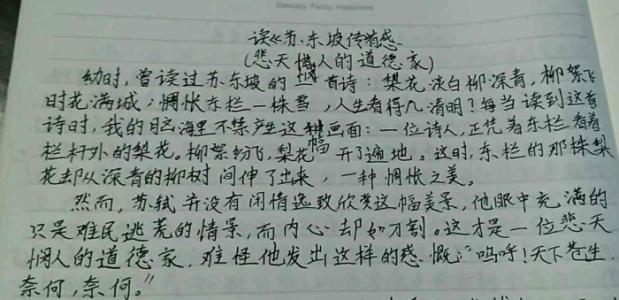 Delicacy Family Happiness
读《苏东坡传》有感
(悲天悯人的道德家)
幼时，曾读过苏东坡的一首诗：梨花淡白柳深青，柳絮飞
时花满城；惆怅东栏一株雪，人生看得几清明？每当读到这首
诗时，我的脑海里不禁产生这种画面：一位诗人，正凭着东栏看着
栏杆外的梨花。柳絮纷飞，梨花开了遍地。这时，东栏的那株梨
花却从深青的柳树间伸了出来，一种惆怅之美。
然而，苏轼并没有闲情逸致欣赏这幅美景，他眼中充满的
只是难民逃荒的情景，而内心却如刀割。这才是一位悲天
悯人的道德家，难怪他发出这样的感慨：“呜呼！天下苍生，
奈何，奈何。”